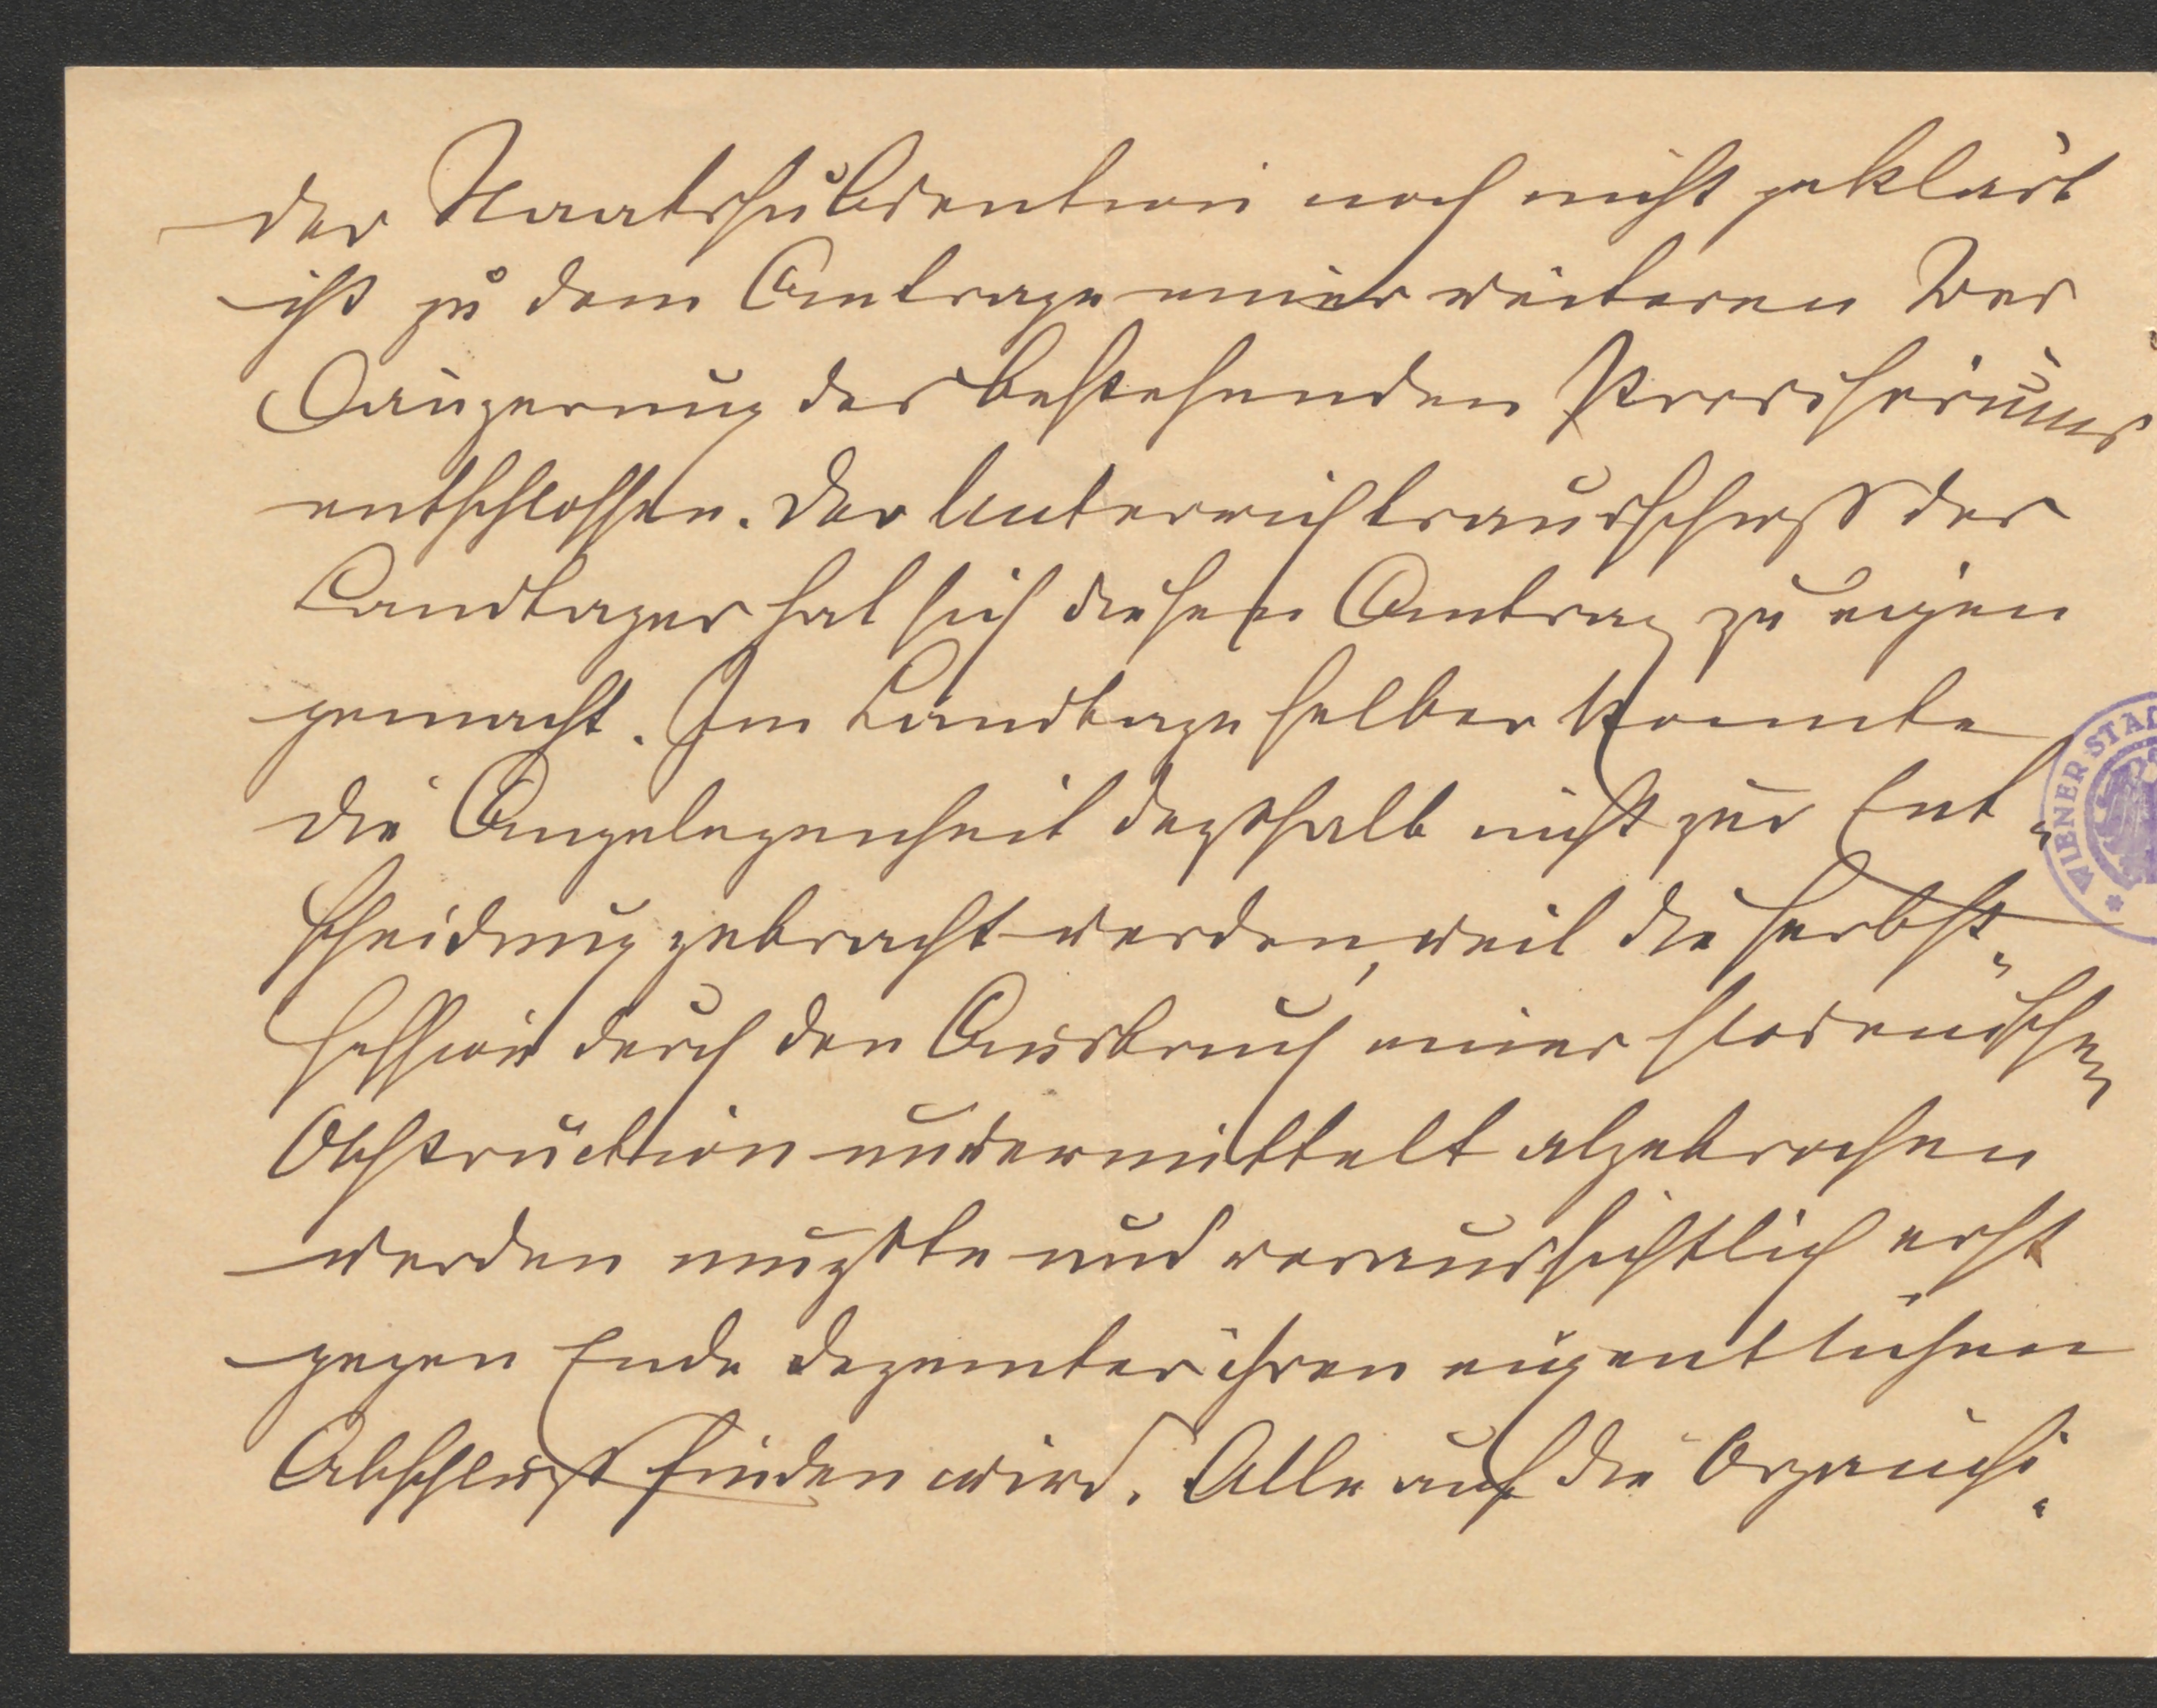 der Staatssubvention noch nicht geklärt
ist zu dem Antrage einer weiteren Ver
längerung des bestehenden Provisoriums
entschlossen. Der Unterrichtsausschuß des
Landtages hat sich diesen Antrag zu eigen
gemacht. Im Landtage selber konnte
die Angelegenheit deßhalb nicht zur Ent-
scheidung gebracht werden, weil die Herbst-
session durch den Ausbruch einer slovenischen
Obstruction unvermittelt abgebrochen
werden mußte und voraussichtlich erst
gegen Ende Dezember ihren eigentlichen
Abschluß finden wird. Alle auf die Organisi-
WIENER STAD